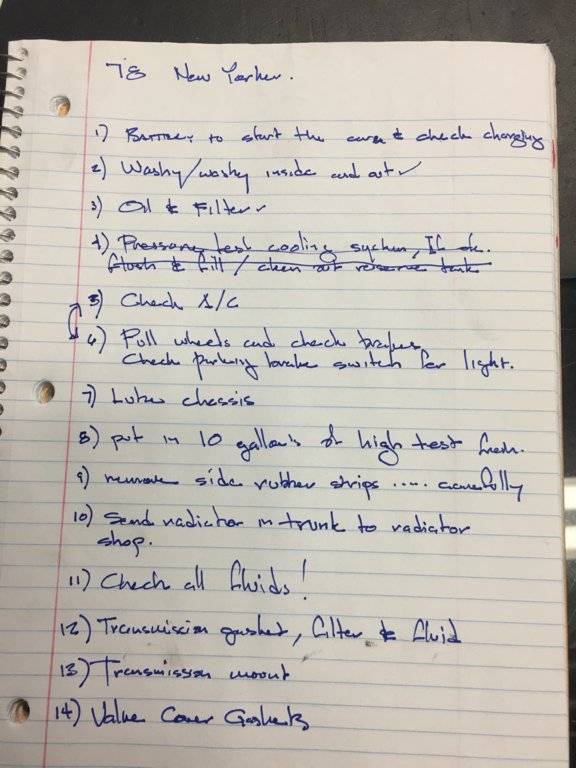 78 New Yorker.
1) Battery to start the car & check charging
2) Washy/washy inside and out ✓
3) Oil & Filter ✓
4) Pressure test cooling system, If ok.
flush & fill / clean out reserve tank
5) Check A/C
6) Pull wheels and check brakes
Check parking brake switch for light.
7) Lube chassis
8) put in 10 gallons of high test fresh.
9) remove side rubber strips ..... carefully
10) Send radiator in trunk to radiator
shop.
11) Check all fluids!
12) Transmission gasket, filter & fluid
13) Transmission mount
14) Valve Cover Gaskets